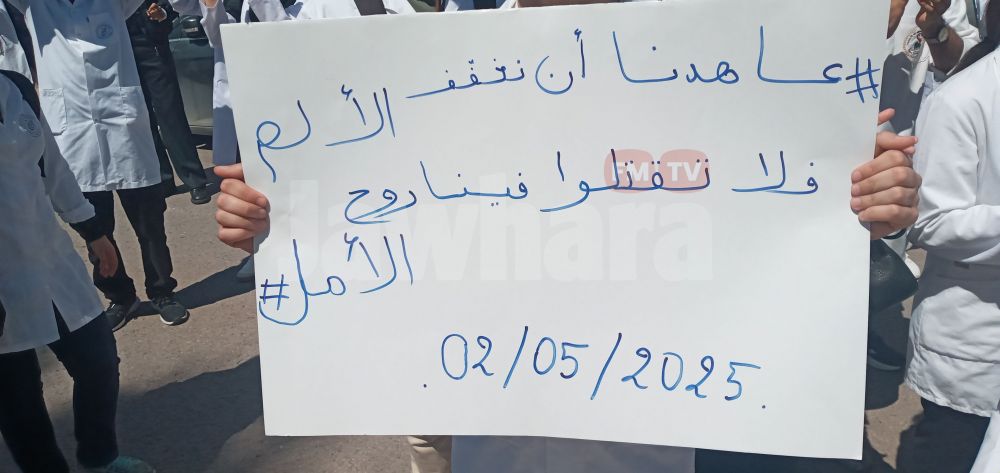 #عاهدنا أن نخفف
الألم
فلا تقتلوا فينا روح
الأمل#
.02/05/2025.
FM TV
Jawhara